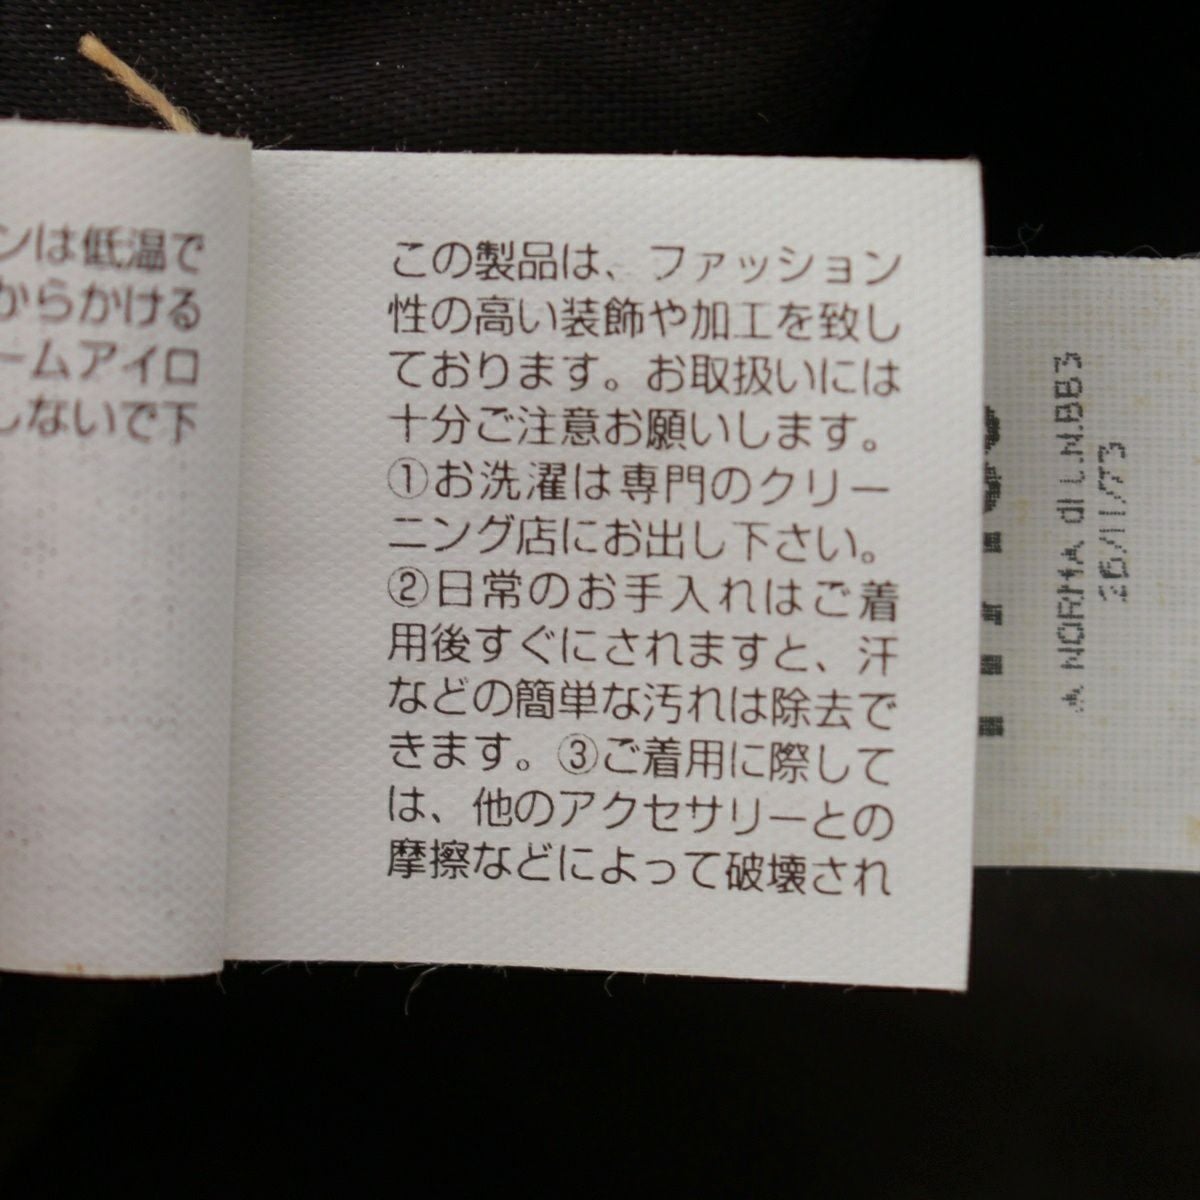 ンは低温で
からかける
ームアイロ
しないで下
この製品は、ファッション
性の高い装飾や加工を致し
ております。お取扱いには
十分ご注意お願いします。
①お洗濯は専門のクリー
ニング店にお出し下さい。
②日常のお手入れはご着
用後すぐにされますと、汗
などの簡単な汚れは除去で
きます。③ご着用に際して
は、他のアクセサリーとの
摩擦などによって破壊され
A NORMA di L.N.883
26/11/73